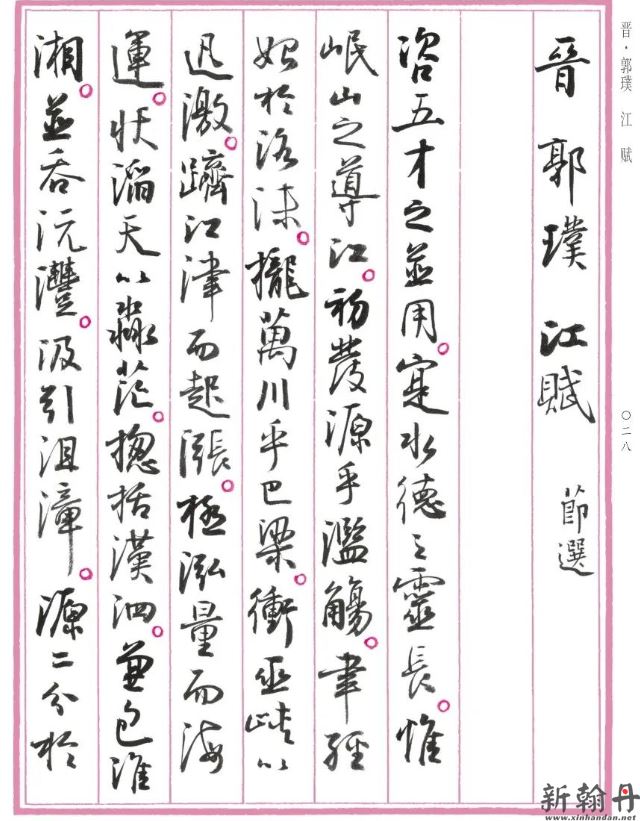 晉·郭璞 江賦
〇二八
晉郭璞 江賦 節選
咨五才之並用。寔水德之靈長。惟
岷山之導江。初發源乎濫觴。聿經
始於洛沬。攏萬川乎巴梁。衝巫峽以
迅激。躋江津而起漲。極泓量而海
運。狀滔天以淼茫。摠括漢泗。兼包淮
湘。並吞沅灃。汲引沮漳。源二分於
新翰丹
www.xinhandan.net